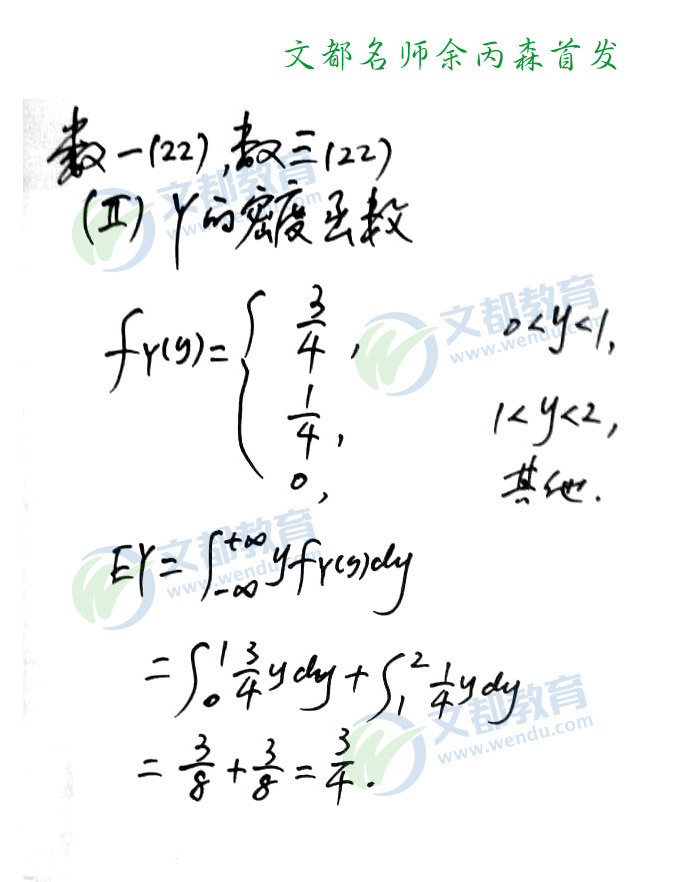 文都名师余丙森首发
数一(22),数三(22)
(Ⅱ) Y的密度函数
f_Y(y)={ 3/4, 0<y<1,
1/4, 1<y<2,
0, 其他.
EY=∫_{-∞}^{+∞} y f_Y(y)dy
=∫_0^1 3/4 y dy+∫_1^2 1/4 y dy
=3/8+3/8=3/4.
文都教育
www.wendu.com
文都教育
www.wendu.com
文都教育
www.wendu.com
文都教育
www.wendu.com